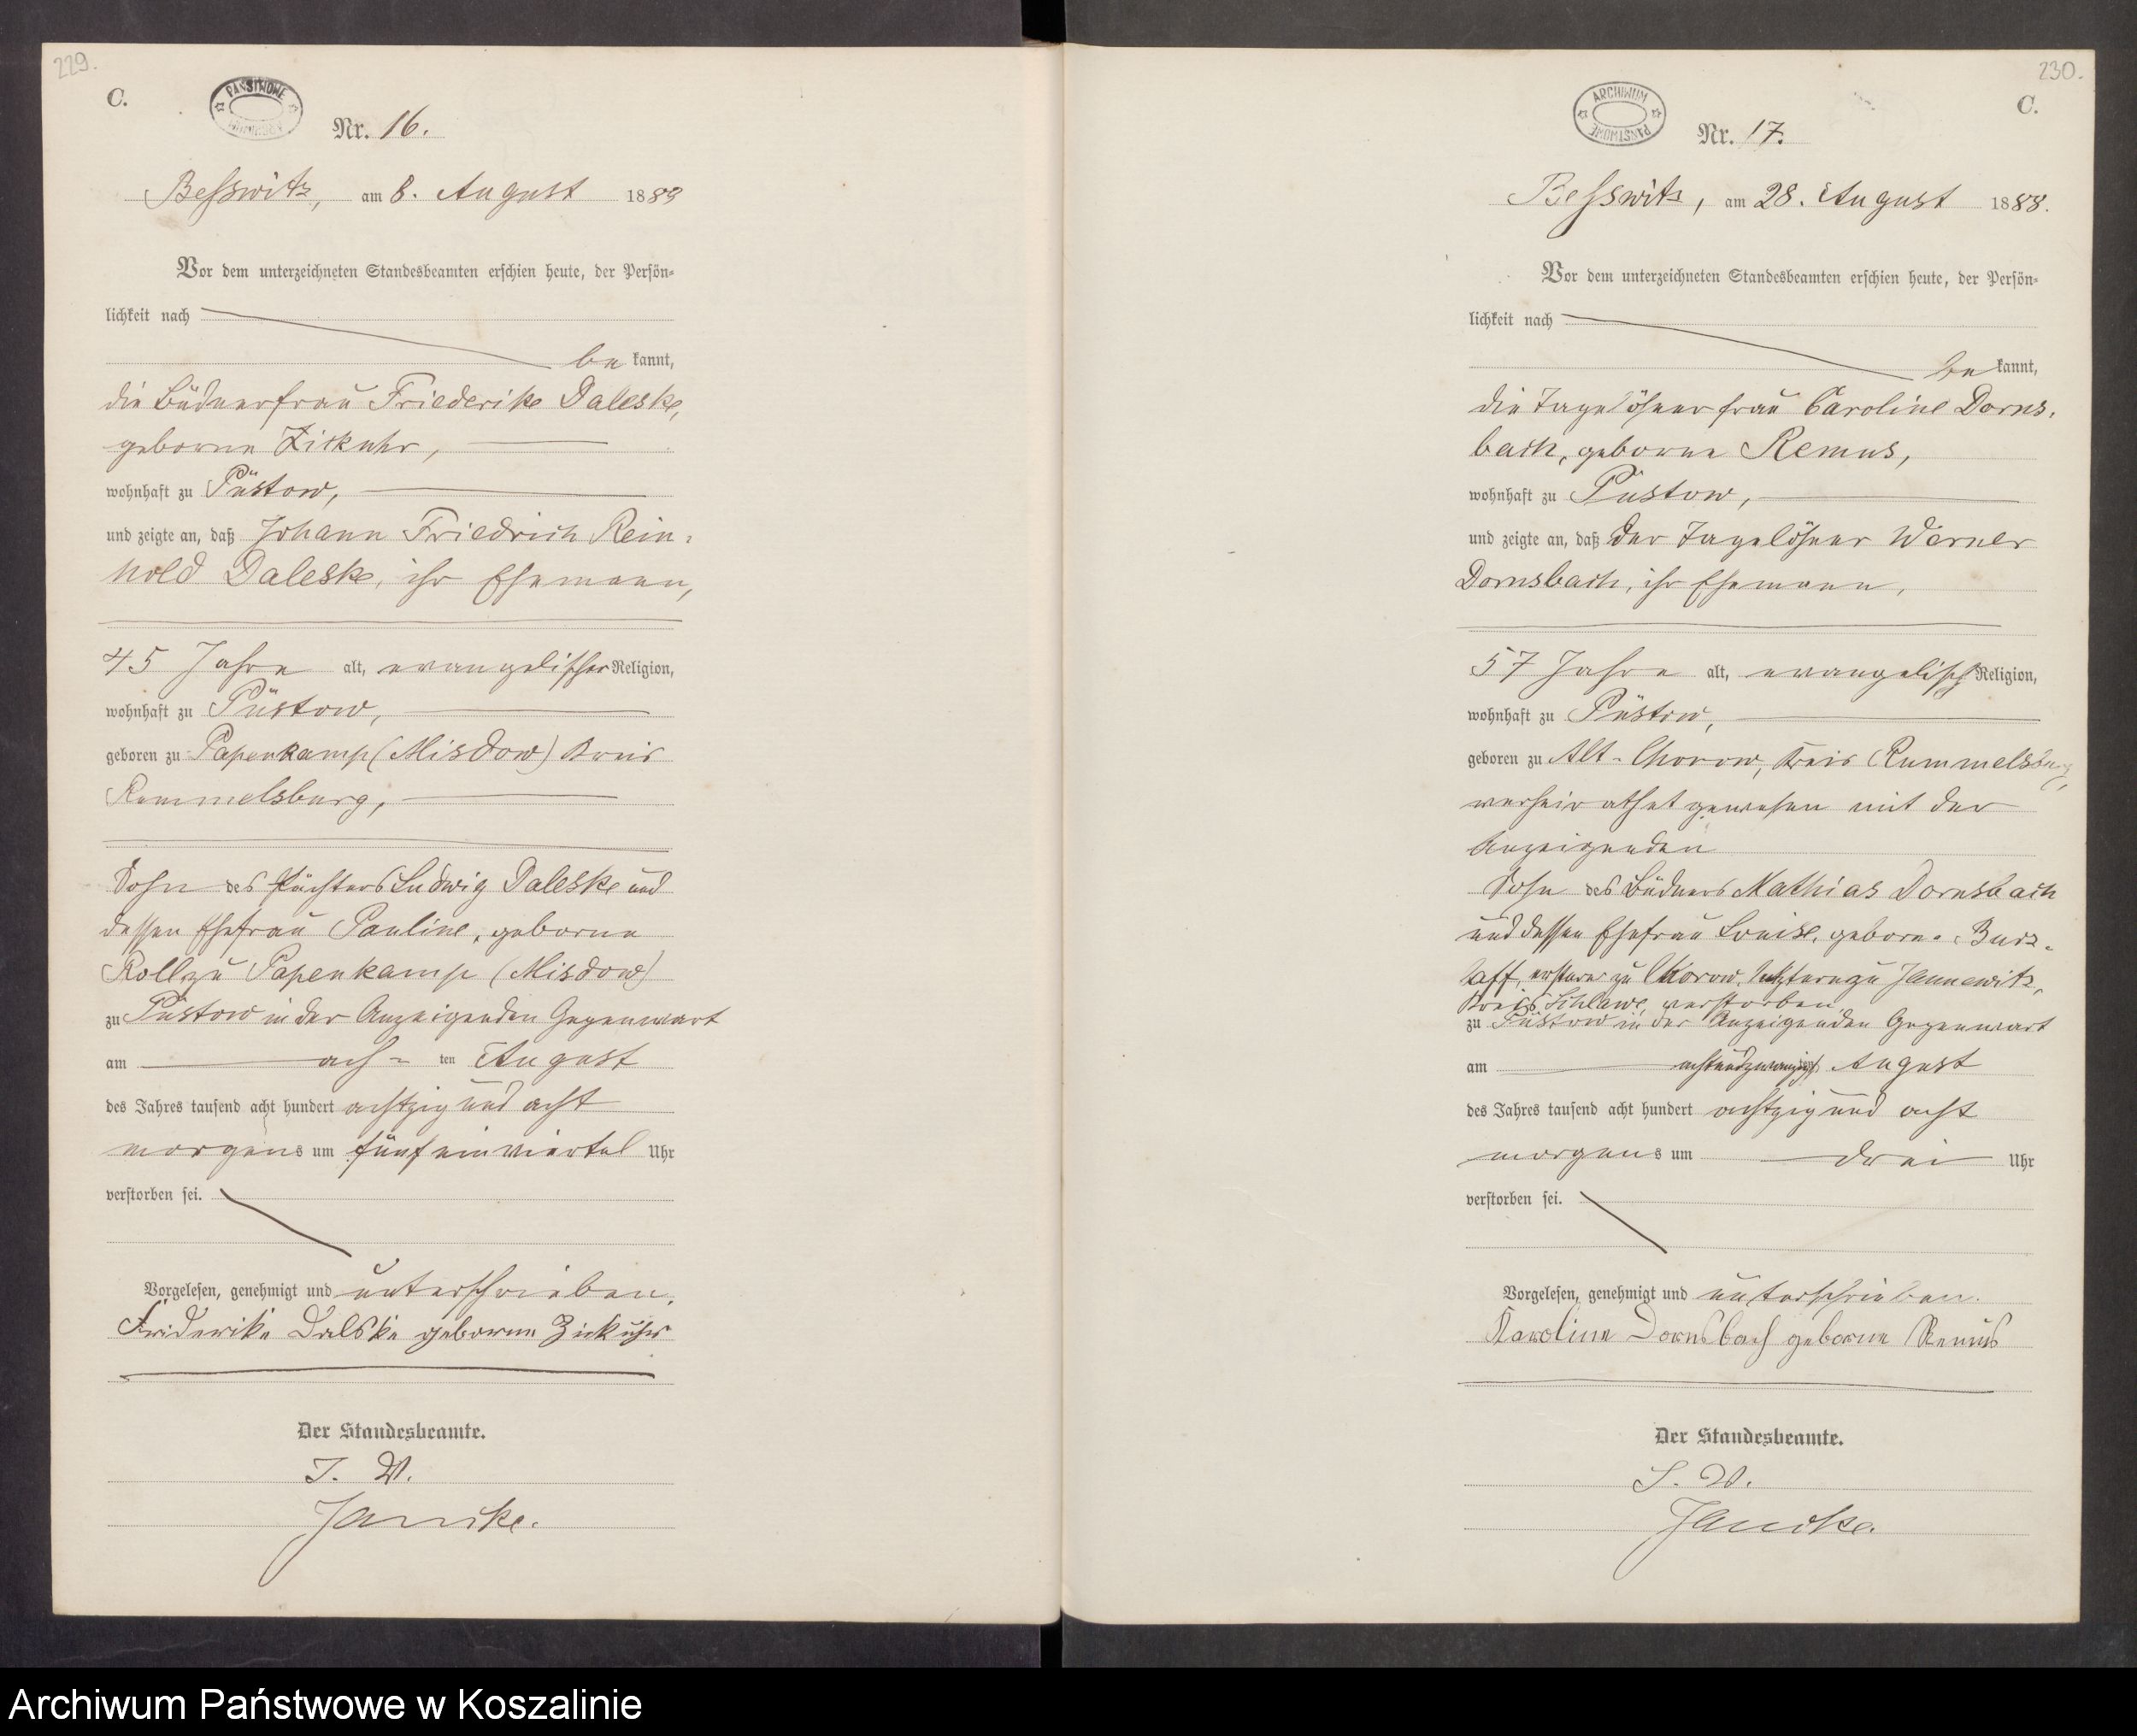 229.
C.
PAŃSTWOWE
Nr. 16.
Besswitz, am 8. August 1888
Vor dem unterzeichneten Standesbeamten erschien heute, der Persön-
lichkeit nach
be kannt,
die Büdnerfrau Friederike Daleske,
geborne Zickuhr,
wohnhaft zu Püstow,
und zeigte an, daß Johann Friedrich Rein-
hold Daleske, ihr Ehemann,
45 Jahre alt, evangelischer Religion,
wohnhaft zu Püstow,
geboren zu Papenkamp (Misdow) Kreis
Rummelsburg,
Sohn des Pächters Ludwig Daleske und
dessen Ehefrau Pauline, geborne
Roll zu Papenkamp (Misdow)
zu Püstow in der Anzeigenden Gegenwart
am ach- ten August
des Jahres tausend acht hundert achtzig und acht
morgens um fünf ein viertel Uhr
verstorben sei.
Vorgelesen, genehmigt und unterschrieben.
Friderike Dalske geborne Zickuhr
Der Standesbeamte.
J. V.
Jancke.
230.
C.
ARCHIWUM
PAŃSTWOWE
Nr. 17.
Besswitz, am 28. August 1888.
Vor dem unterzeichneten Standesbeamten erschien heute, der Persön-
lichkeit nach
be kannt,
die Tagelöhnerfrau Caroline Dorns-
bach, geborne Remus,
wohnhaft zu Püstow,
und zeigte an, daß der Tagelöhner Werner
Dornsbach, ihr Ehemann,
57 Jahre alt, evangelisch Religion,
wohnhaft zu Püstow,
geboren zu Alt-Chorow, Kreis Rummelsburg,
verheirathet gewesen mit der
Anzeigenden
Sohn des Büdners Mathias Dornsbach
und dessen Ehefrau Louise, geborne Burz-
laff, ersterer zu Chorow, letztere zu Jannewitz,
Kreis Schlawe, verstorben,
zu Püstow in der Anzeigenden Gegenwart
am achtundzwanzigsten August
des Jahres tausend acht hundert achtzig und acht
morgens um drei Uhr
verstorben sei.
Vorgelesen, genehmigt und unterschrieben.
Karoline Dornsbach geborne Remus
Der Standesbeamte.
J. V.
Jancke.
Archiwum Państwowe w Koszalinie